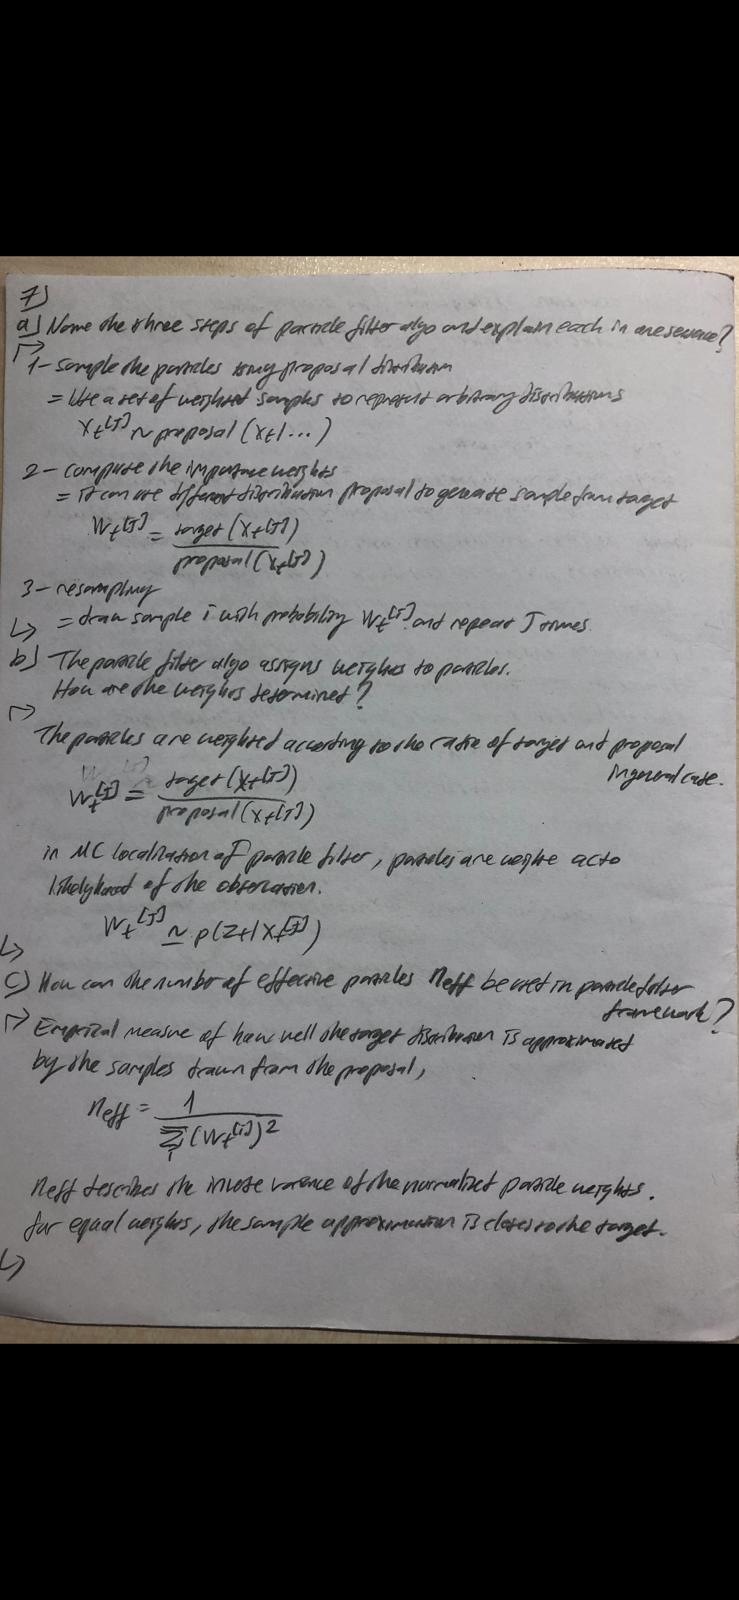 7)
a) Name the three steps of particle filter algo and explain each in one sentence?
1- Sample the particles using proposal distribution
= Use a set of weighted samples to represent arbitrary distributions
Xt[J] ~ proposal (Xt|...)
2- compute the importance weights
= it can use different distribution proposal to generate sample from target
Wt[J] = target (Xt[J])
proposal (Xt[J])
3- resampling
= draw sample i with probability Wt[i] and repeat J times.
b) The particle filter algo assigns weights to particles.
How are the weights determined?
The particles are weighted according to the ratio of target and proposal
in general case.
Wt[J] = target (Xt[J])
proposal (Xt[J])
in MC localization of particle filter, particles are weighte acto
likelyhood of the observation.
Wt[J] ≃ p(Zt|Xt[J])
c) How can the number of effective particles neff be used in particle filter
framework?
Emprical measure of how well the target distribution is approximated
by the samples drawn from the proposal,
neff = 1
Σi (Wt[i])²
neff describes the inverse varence of the normalized particle weights.
for equal weights, the sample approximation is closes to the target.